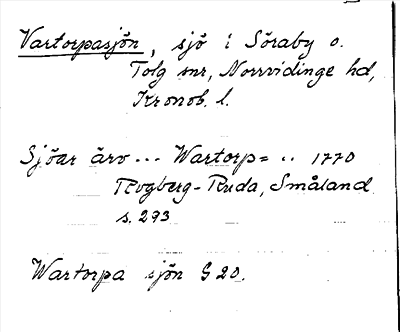 Vartorpasjön, sjö i Söraby o.
Tolg snr, Norrvidinge hd,
Kronob. l.
Sjöar äro --- Wartorp= .. 1770
Rogberg-Ruda, Småland
s. 293
Wartorpa sjön G 20.